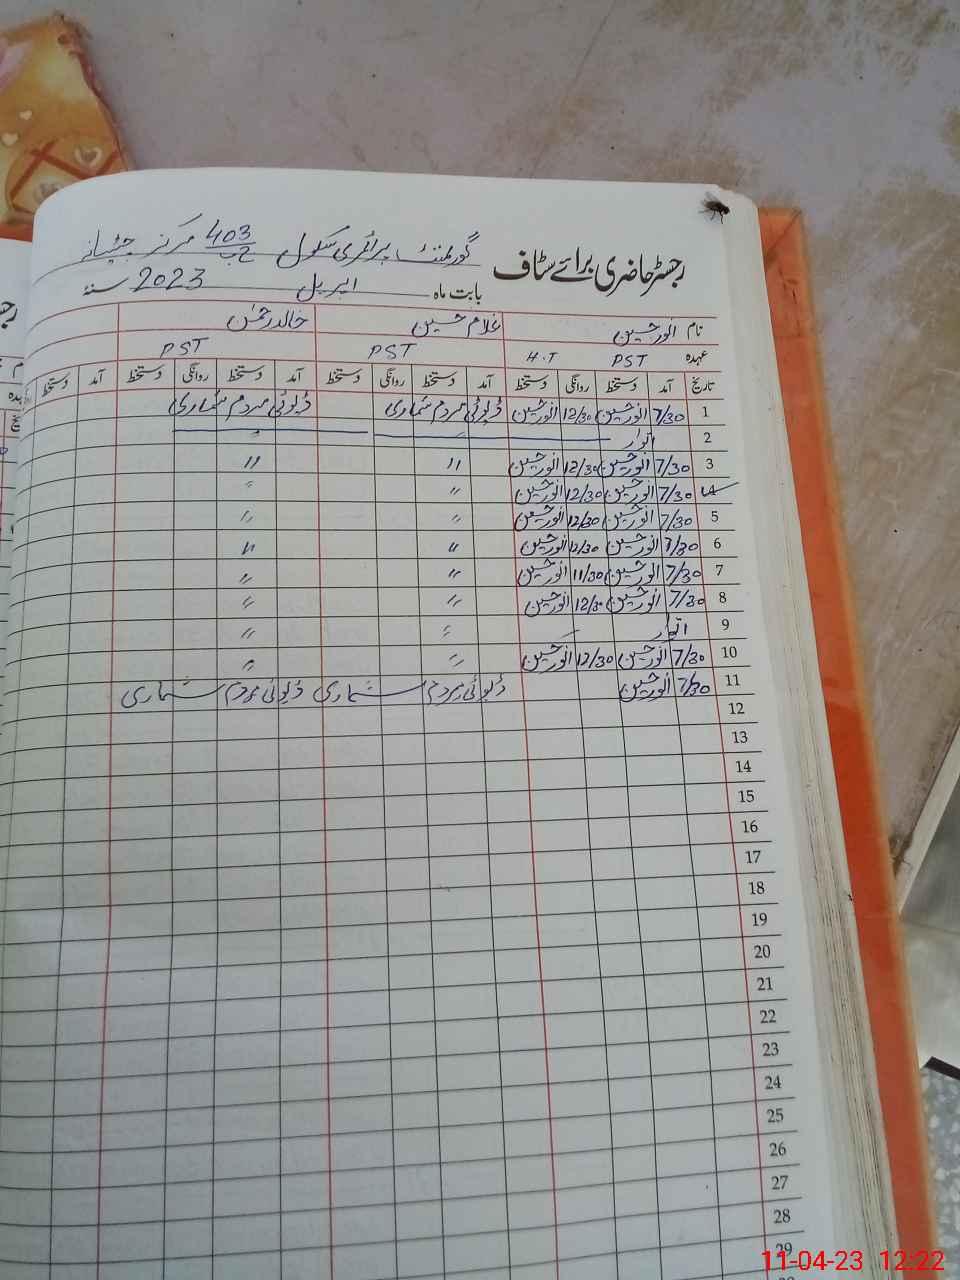 رجسٹر حاضری برائے سٹاف گورنمنٹ پرائمری سکول 403 ج ب مرکز
بابت ماہ اپریل 2023 سنہ
نام انور حسین غلام حسین خالد رحمٰن
عہدہ PST H.T PST PST
تاریخ آمد دستخط روانگی دستخط آمد دستخط روانگی دستخط آمد دستخط روانگی دستخط آمد دستخط
1 7/30 انور حسین 12/30 انور حسین ڈیوٹی مردم شماری ڈیوٹی مردم شماری
2 اتوار
3 7/30 انور حسین 12/30 انور حسین 〃 〃
4 7/30 انور حسین 12/30 انور حسین 〃 〃
5 7/30 انور حسین 12/30 انور حسین 〃 〃
6 7/30 انور حسین 12/30 انور حسین 〃 〃
7 7/30 انور حسین 11/30 انور حسین 〃 〃
8 7/30 انور حسین 12/30 انور حسین 〃 〃
9 اتوار 〃 〃
10 7/30 انور حسین 12/30 انور حسین 〃 〃
11 7/30 انور حسین ڈیوٹی مردم شماری ڈیوٹی مردم شماری
12
13
14
15
16
17
18
19
20
21
22
23
24
25
26
27
28
29
11-04-23 12:22